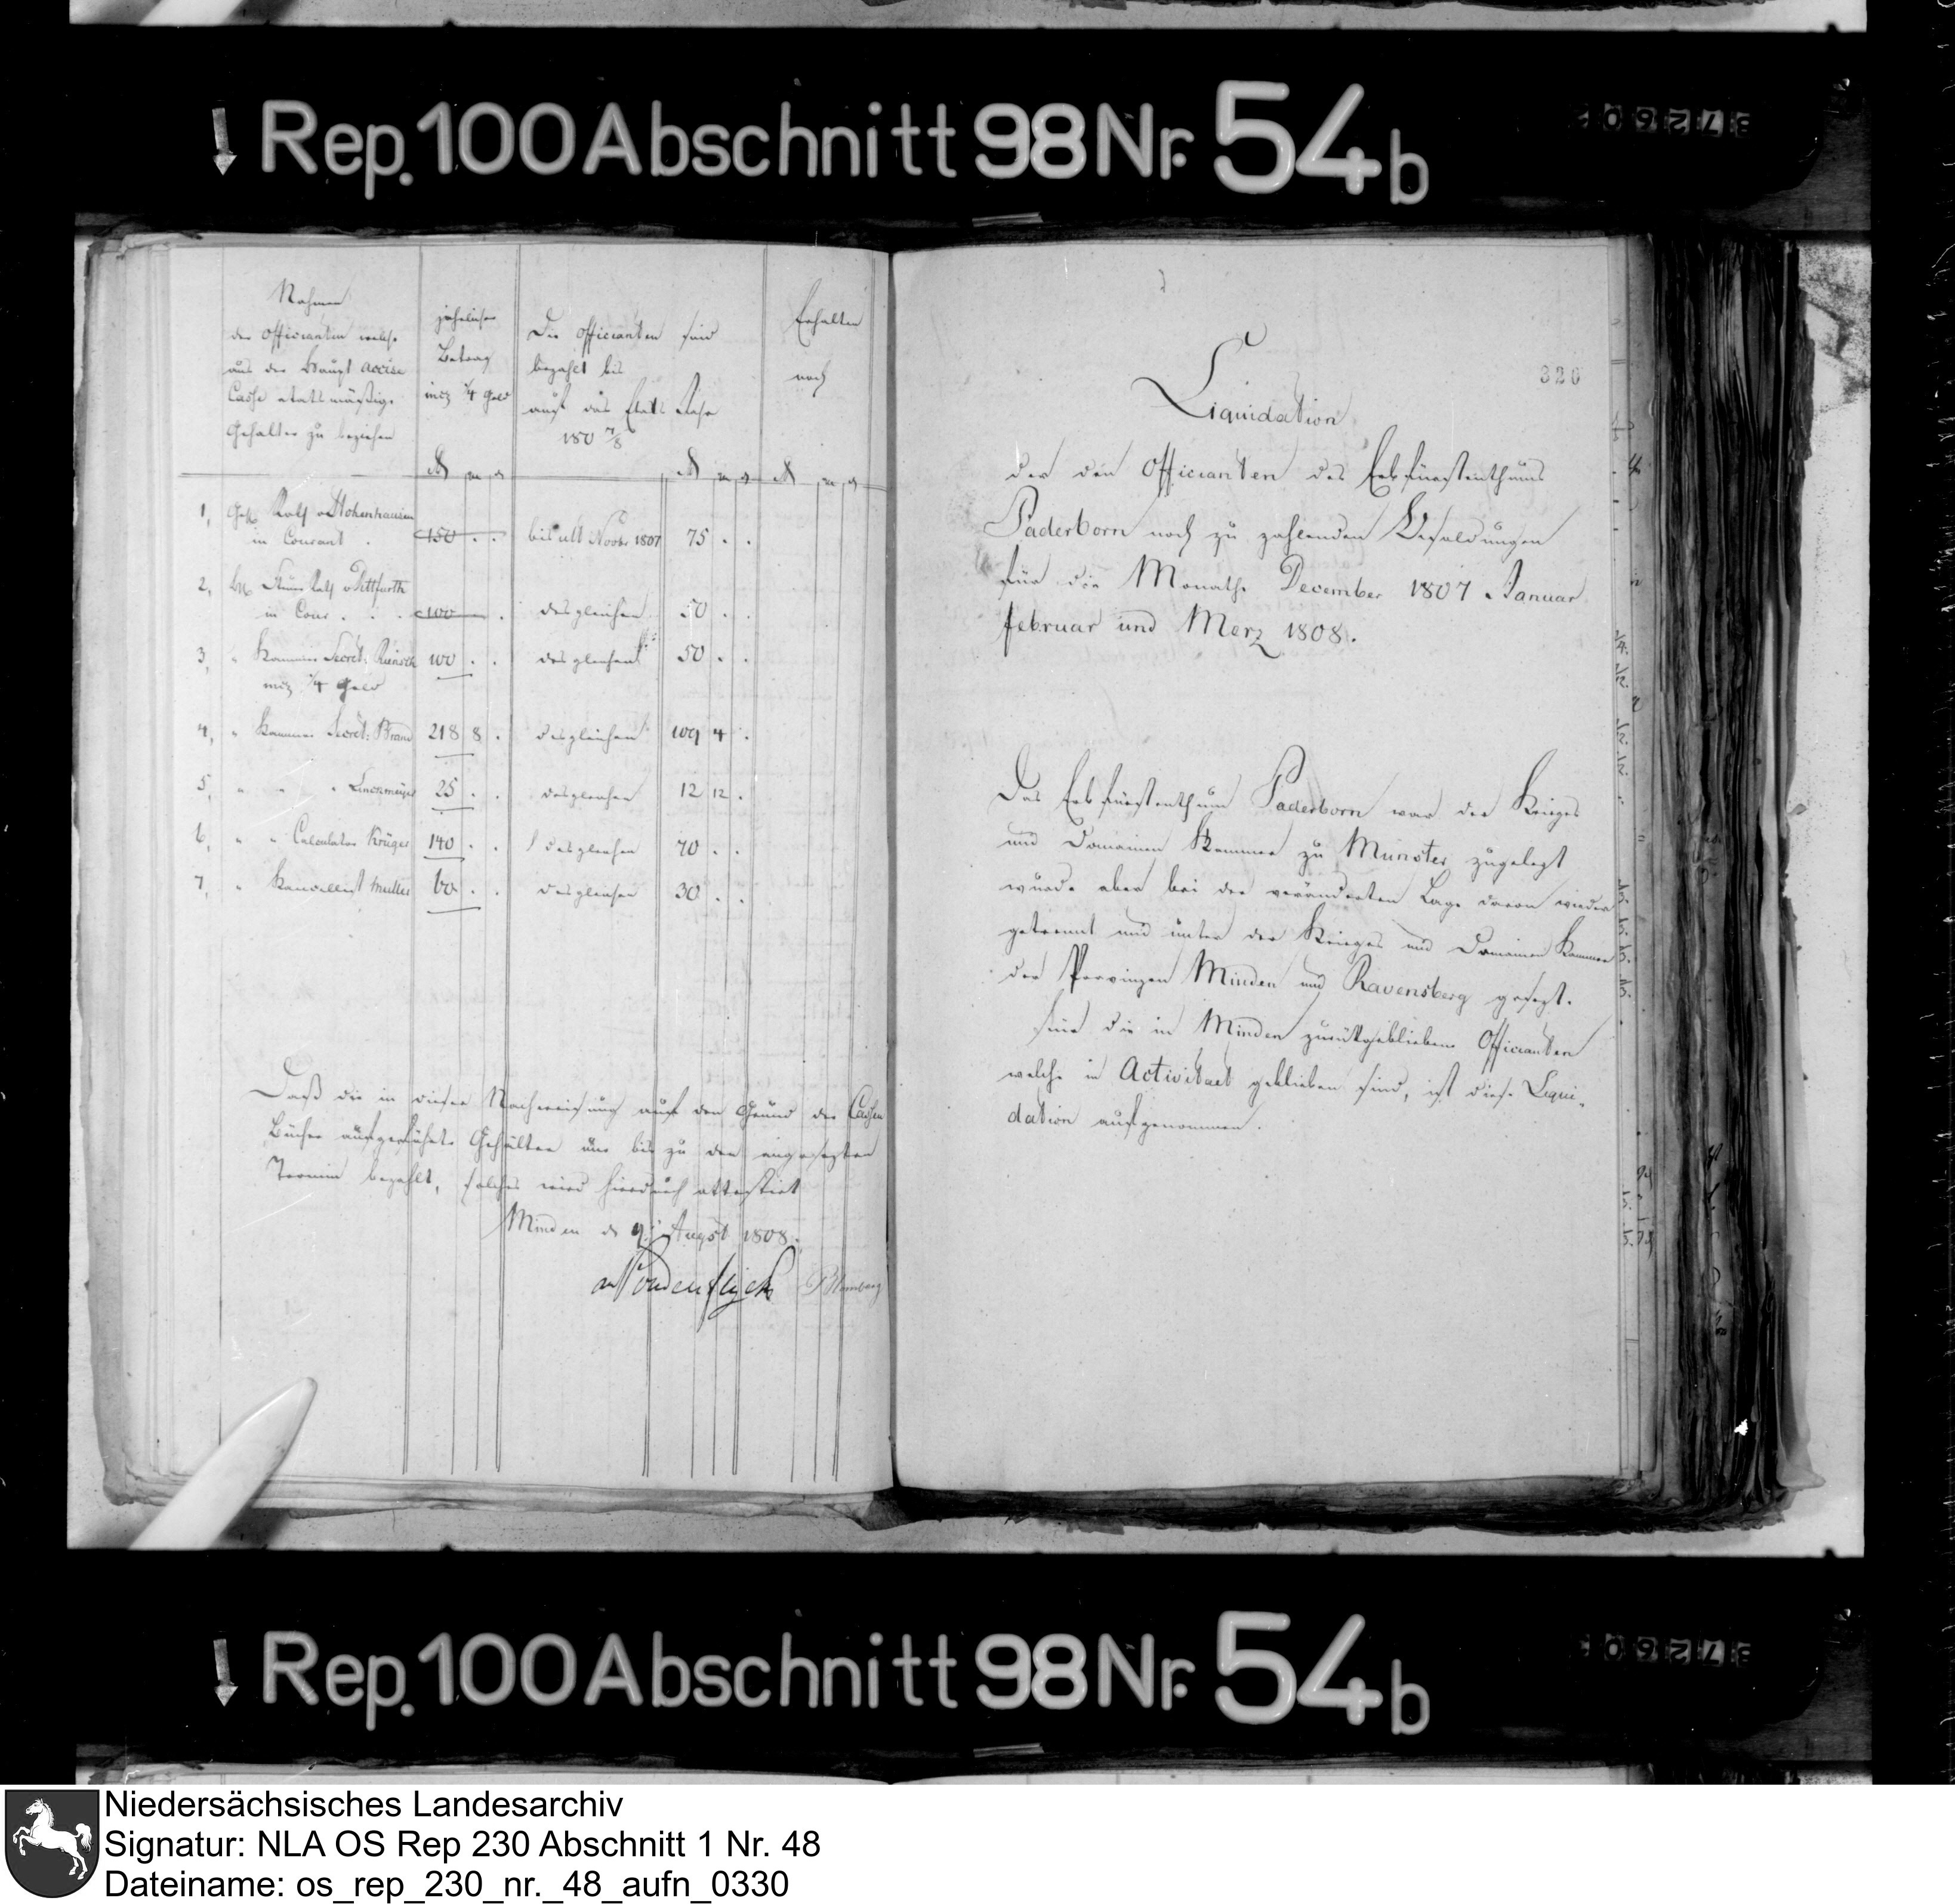 Rep. 100 Abschnitt 98 Nr. 54b
37260
Nahmen
der Officianten welche
aus der Haupt Accise
Casse etatsmäßige
Gehalter zu beziehen
jährlicher
Betrag
incl 1/4 Gold
Die Officianten sind
bezahlt bis
auf das Etats Jahr
180 7/8
Erhalten
noch
1, Geh. Rath v Hohenhausen
in Courant . 150 . . bis ult Novbr 1807 75 . .
2, v Pittfurth
in Cour . . . 100 . desgleichen 50 . .
3, " Kammer Secret: 100 . . desgleichen 50 . .
incl 1/4 Gold
4, " Kammer Secret: Brand 218 8 . desgleichen 109 4 .
5, " " " 25 . . desgleichen 12 12 .
6, " " Calculator Krüger 140 . . desgleichen 70 . .
7, " Kancellist Muller 60 . . desgleichen 30 . .
Daß die in dieser Nachweisung auf den Grund der Cassen
Bücher aufgeführte Gehälter nur bis zu den angesezten
Termin bezahlt, solches wird hierdurch attestirt
Minden d 9t August 1808.
Blomberg
320
Liquidation
der den Officianten des Erbfürstenthums
Paderborn noch zu zahlenden Besoldungen
für die Monathe December 1807. Januar
februar und Merz 1808.
Das Erbfürstenthum Paderborn war der Krieges
und Domainen Kammer zu Münster zugelegt
wurde aber bei der veränderten Lage davon wieder
getrennt und unter der Krieges und Domainen Kammer
der Provinzen Minden und Ravensberg gesezt.
Für die in Minden zurükgebliebene Officianten
welche in Activitaet geblieben sind, ist diese Liqui-
dation aufgenommen.
Rep. 100 Abschnitt 98 Nr. 54b
37260
Niedersächsisches Landesarchiv
Signatur: NLA OS Rep 230 Abschnitt 1 Nr. 48
Dateiname: os_rep_230_nr._48_aufn_0330